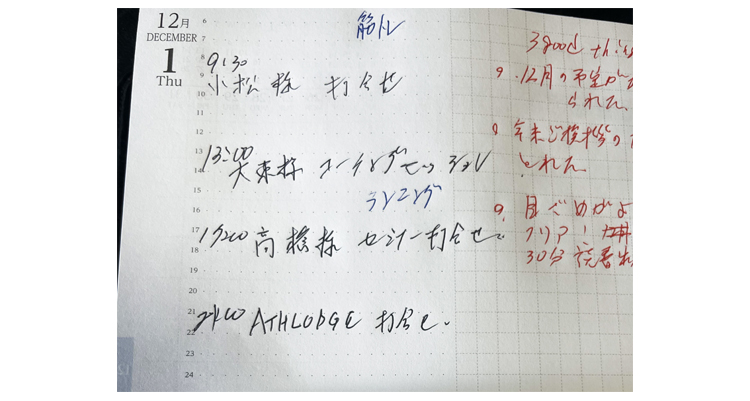 12月
DECEMBER
1
Thu
6
7
8
9
10
11
12
13
14
15
16
17
18
19
20
21
22
23
24
筋トレ
9:30
小松様 打合せ
13:00
大東様 コーチングセッション
ランニング
17:00 高橋様 セミナー打合せ。
21:00 ATHLODGE 打合せ。
3 good thi
9. 12月の予定が
られた。
9. 年末ご挨拶の
とれた。
9. 目ざめがよ
クリアー!
30分読書